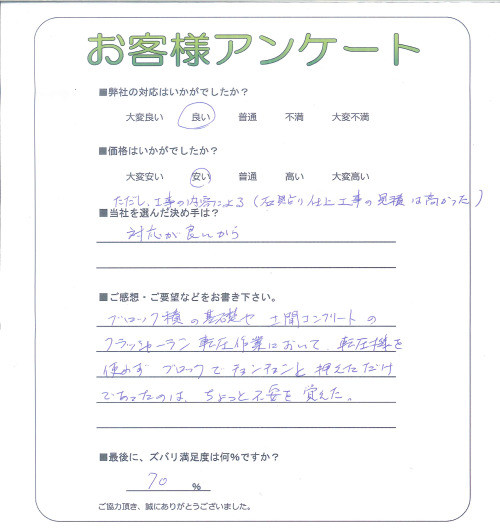 お客様アンケート
■弊社の対応はいかがでしたか?
大変良い 良い 普通 不満 大変不満
■価格はいかがでしたか?
大変安い 安い 普通 高い 大変高い
ただし、工事の内容による(石貼り仕上工事の見積は高かった)
■当社を選んだ決め手は?
対応が良いから
■ご感想・ご要望などをお書き下さい。
ブロック積の基礎や土間コンクリートの
クラッシャーラン転圧作業において、転圧機を
使わず ブロックでチョンチョンと押えただけ
であったのは、ちょっと不安を覚えた。
■最後に、ズバリ満足度は何%ですか?
70 %
ご協力頂き、誠にありがとうございました。